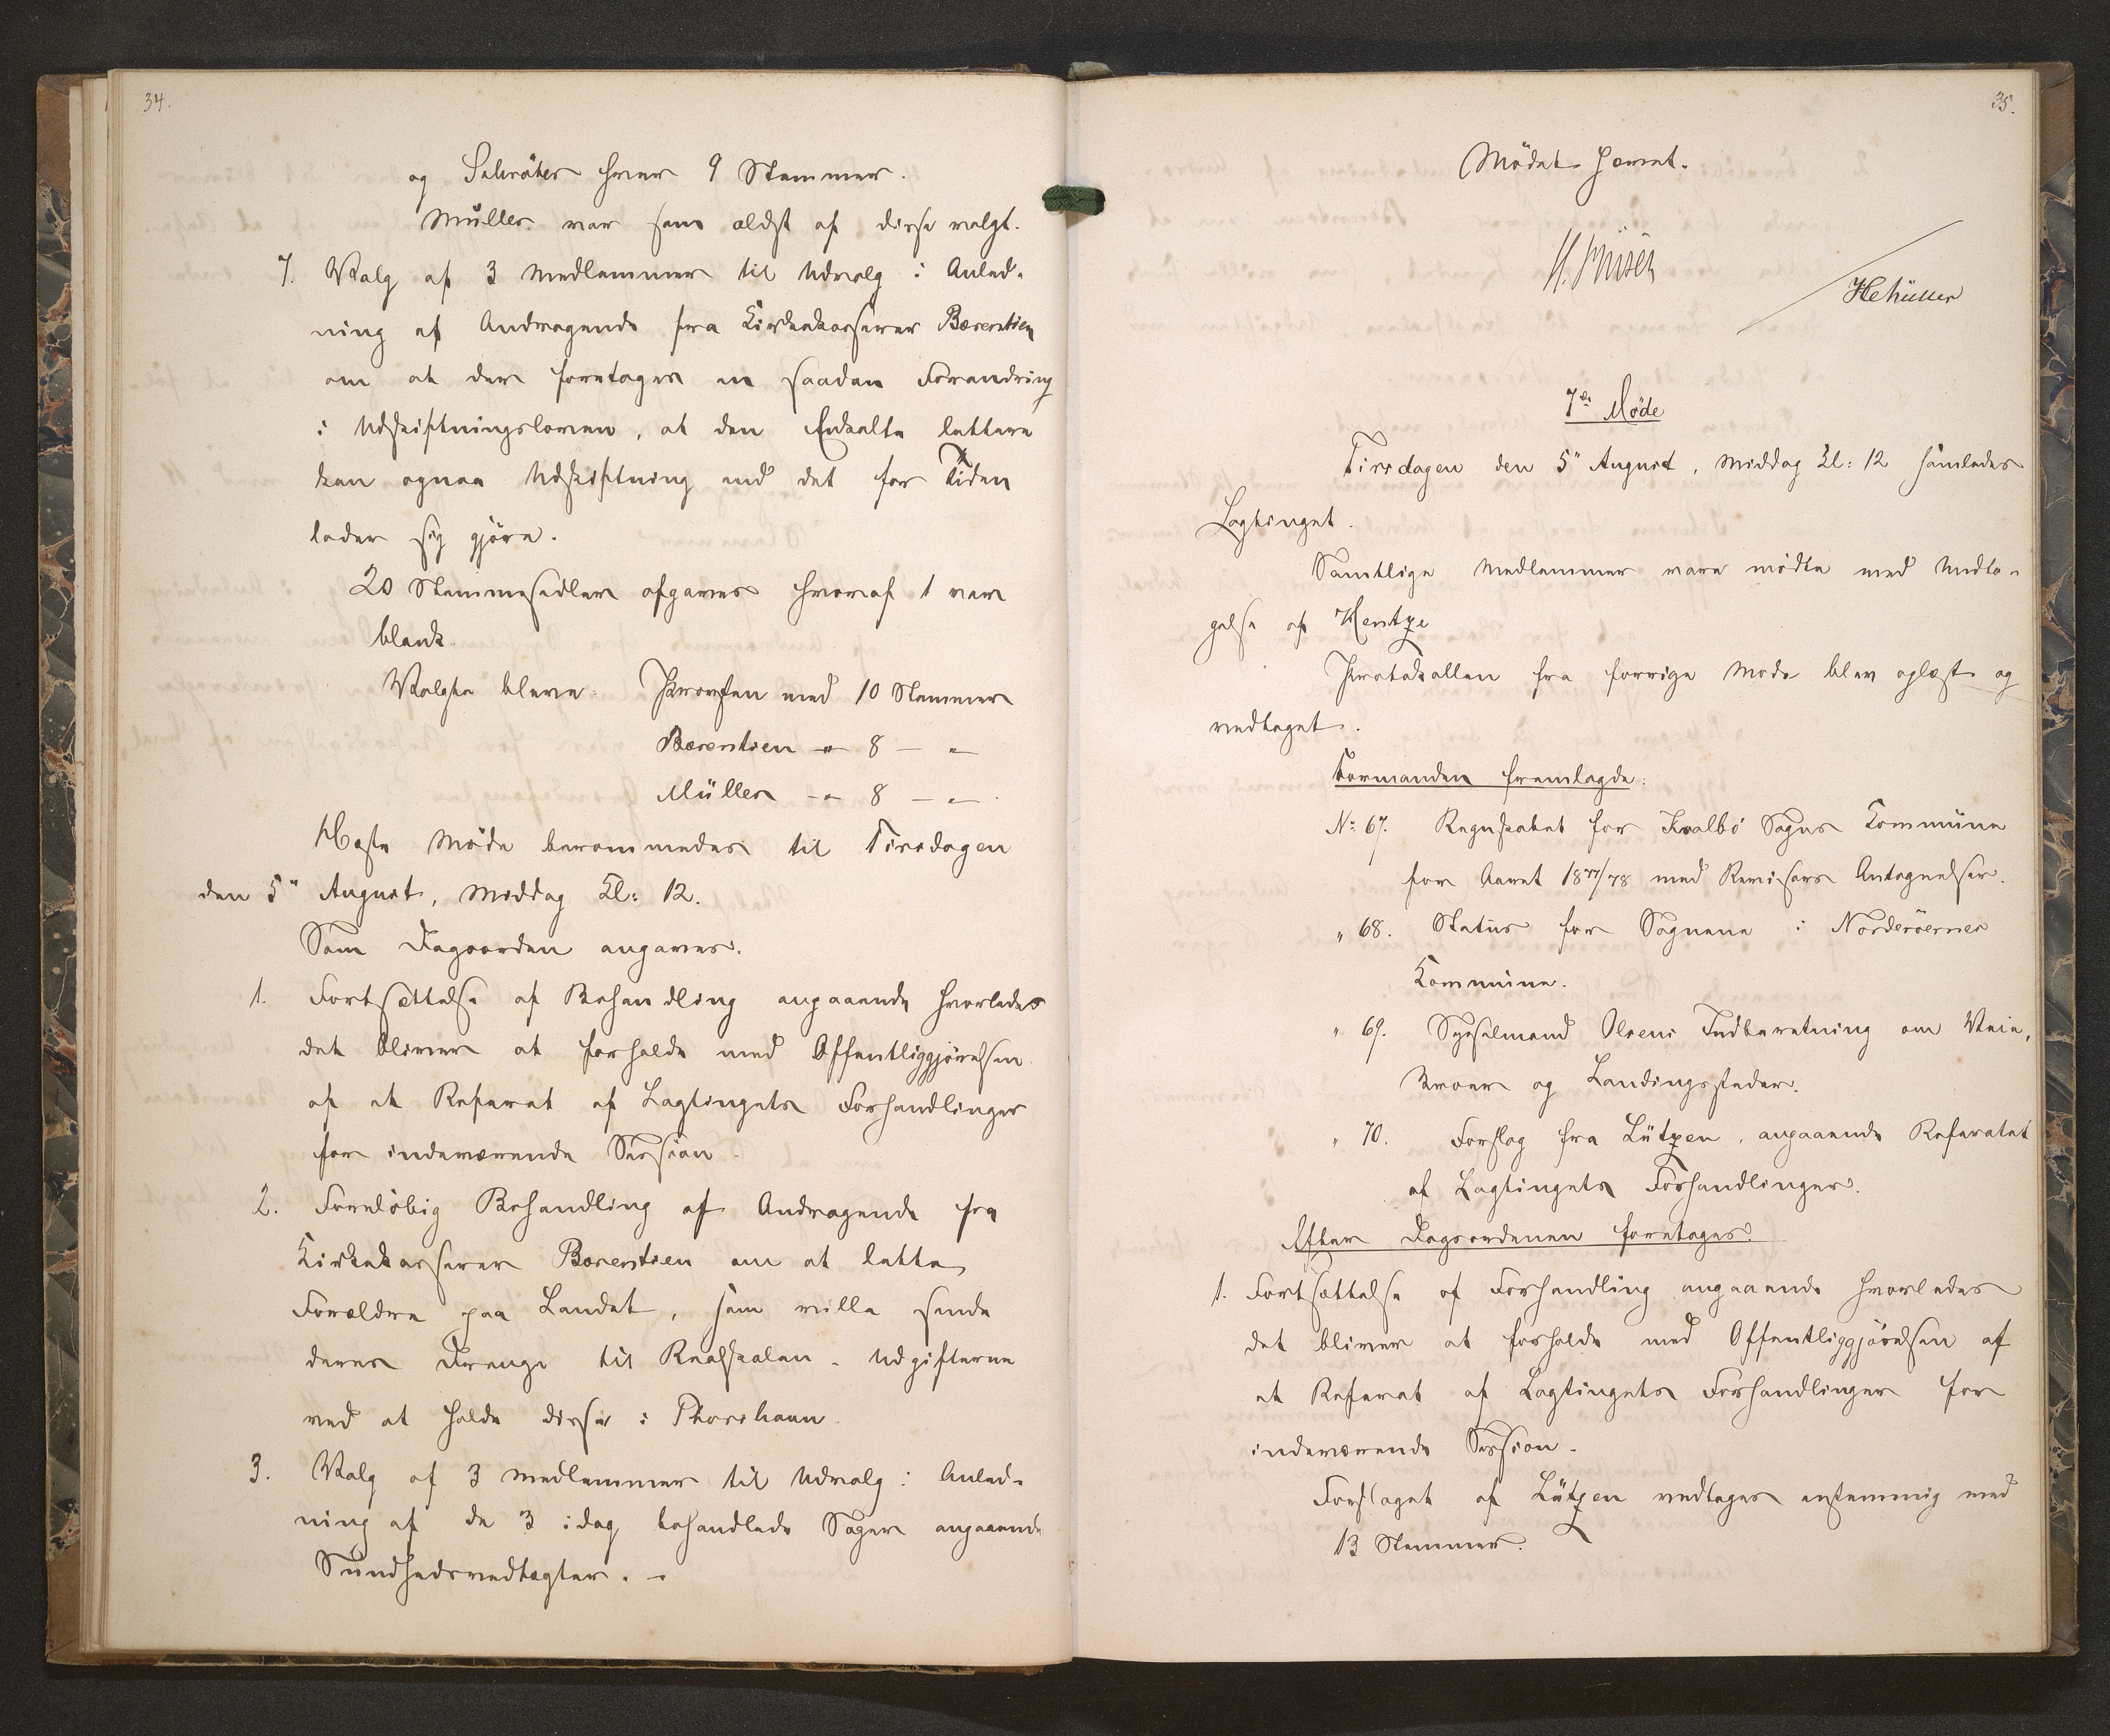 34.
og Schröter hver 9 Stemmer.
Müller var som ældst af disse valgt.
7. Valg af 3 Medlemmer til Udvalg i Anled-
ning af Andragende fra Kirkekasserer Bærentsen
om at der foretages en saadan Forandring
i Udskiftningsloven, at den Enkelte lettere
kan opnaa Udskiftning end det for Tiden
lader sig gjöre.
20 Stemmesedler afgaves hvoraf 1 var
blank.
Valgte bleve: Provsten med 10 Stemmer
Bærentsen -"- 8 — "
Müller -"- 8 — " .
Næste Möde berammedes til Tirsdagen
den 5" August, Middag Kl: 12.
Som Dagsorden angaves.
1. Fortsættelse af Behandling angaaende hvorledes
det bliver at forholde med Offentliggjörelsen
af et Referat af Lagtingets Forhandlinger
for indeværende Session.
2. Forelöbig Behandling af Andragende fra
Kirkekasserer Bærentsen om at lette
Forældre paa Landet, som ville sende
deres Drenge til Realskolen - Udgifterne
ved at holde disse i Thorshavn.
3. Valg af 3 Medlemmer til Udvalg i Anled-
ning af de 3 idag behandlede Sager angaaende
Sundhedsvedtægter. -
35.
Mödet hævet.
HMüller
7de Møde
Tirsdagen den 5" August, Middag Kl: 12 samledes
Lagtinget.
Samtlige Medlemmer vare mödte med Undta-
gelse af Hentze
Protokollen fra forrige Mode blev oplæst og
vedtaget.
Formanden fremlagde:
No 67. Regnskabet for Kvalbö Sogns Kommune
for Aaret 1877/78 med Revisors Antegnelser.
" 68. Status for Sognene i Norderöernes
Kommune.
" 69. Sysselmand Olsens Indberetning om Veie,
Broer og Landingssteder.
" 70. Forslag fra Lützen, angaaende Referatet
af Lagtingets Forhandlinger.
Efter Dagsordenen foretoges:
1. Fortsættelse af Forhandling angaaende hvorledes
det bliver at forholde med Offentliggjörelsen af
et Referat af Lagtingets Forhandlinger for
indeværende Session.
Forslaget af Lützen vedtoges enstemmig med
13 Stemmer.